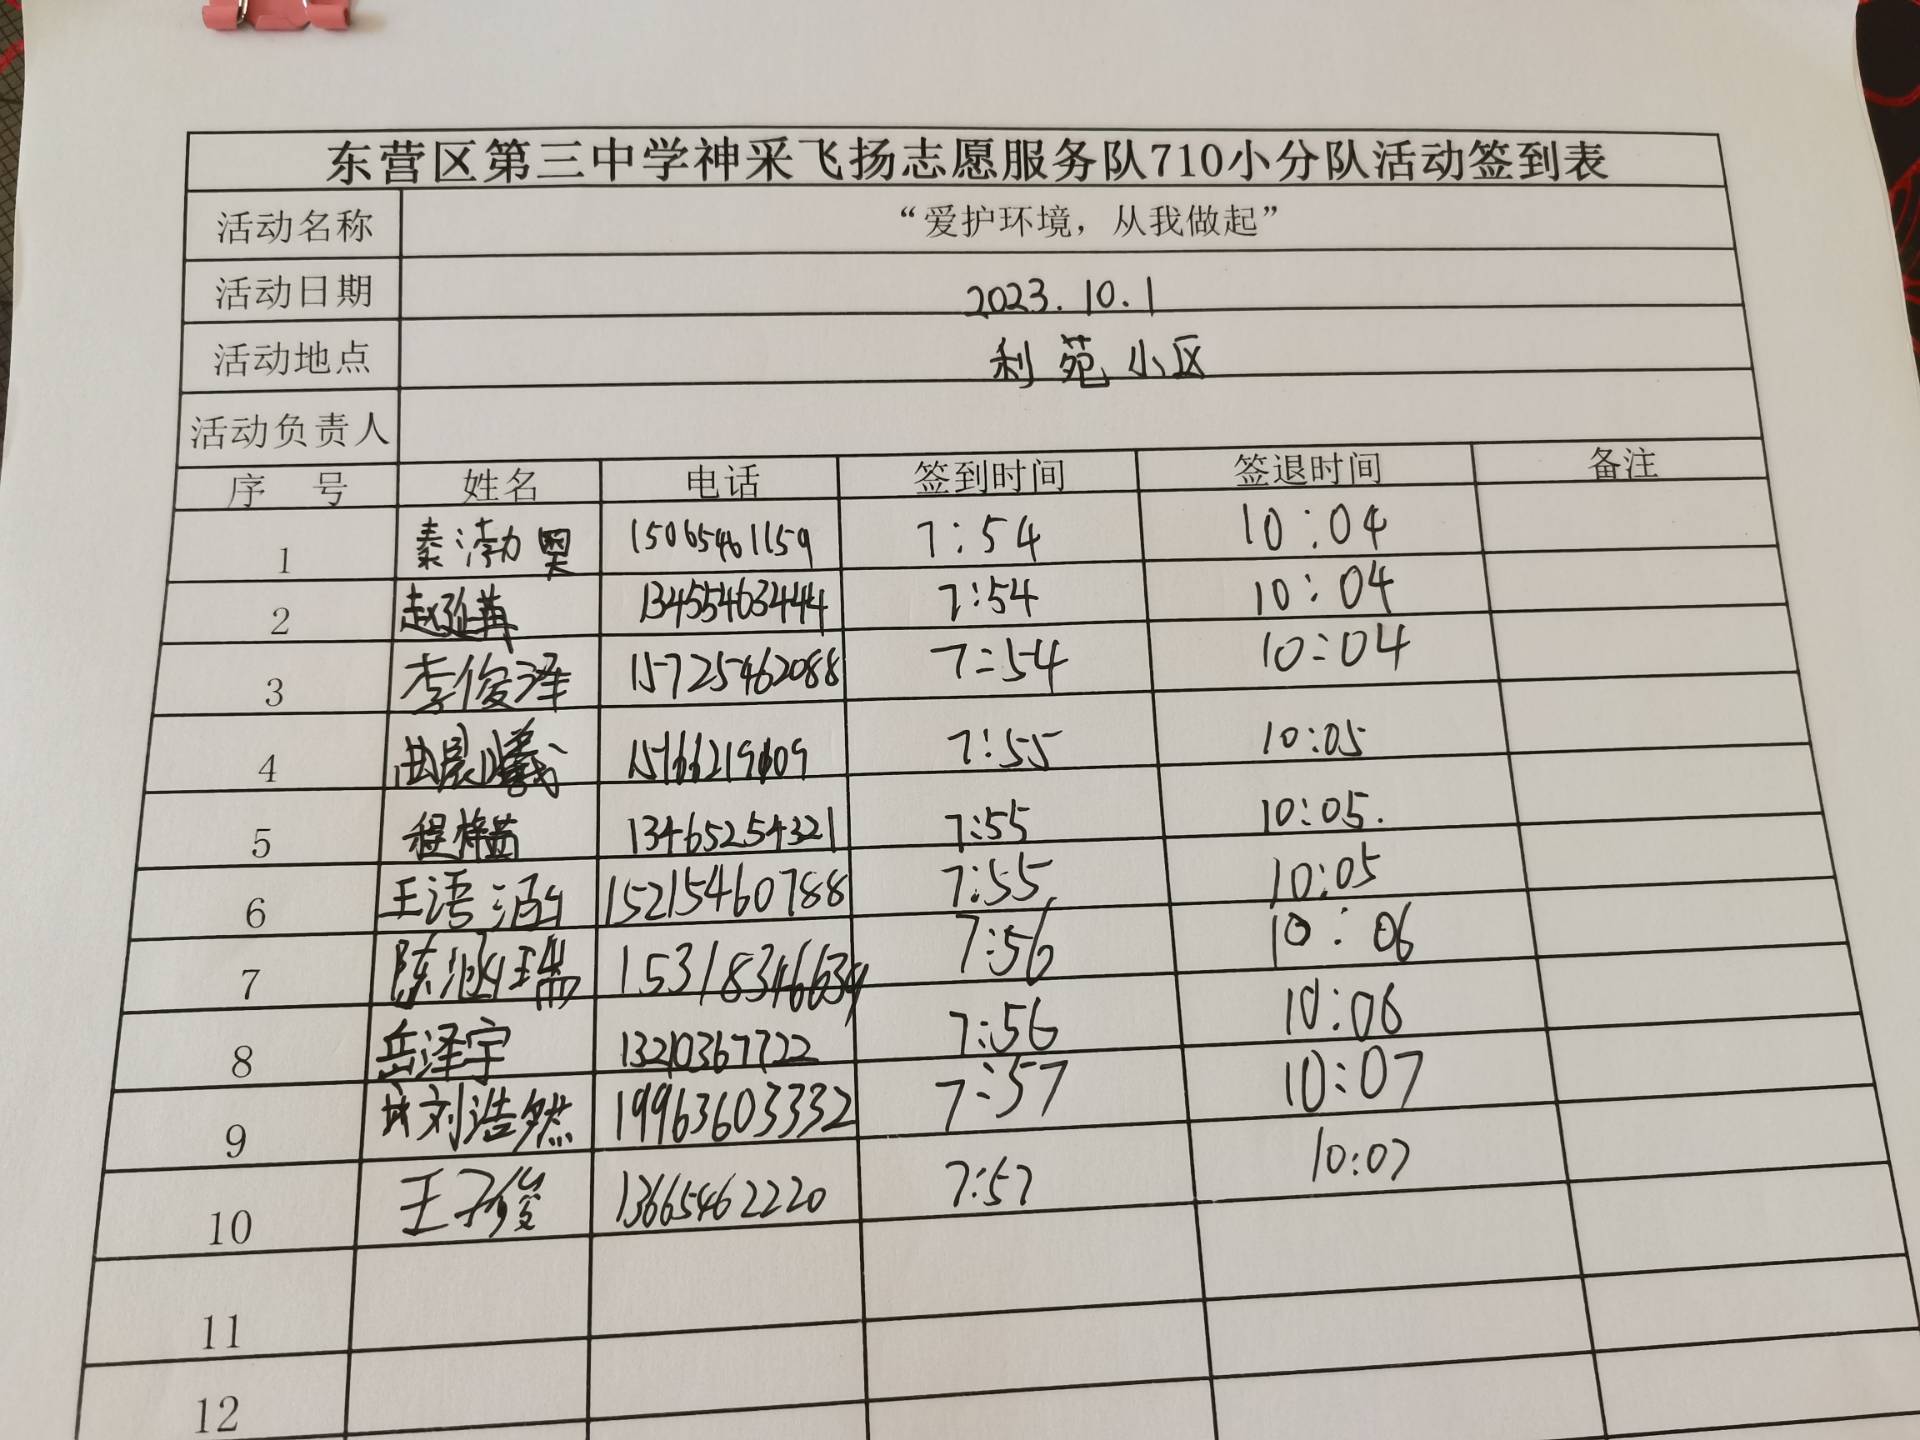 东营区第三中学神采飞扬志愿服务队710小分队活动签到表
活动名称 “爱护环境，从我做起”
活动日期 2023.10.1
活动地点 利苑小区
活动负责人
序 号 姓名 电话 签到时间 签退时间 备注
1 秦渤昊 15065461159 7:54 10:04
2 13455463444 7:54 10:04
3 李俊泽 15725462088 7:54 10:04
4 曲晨曦 15166219609 7:55 10:05
5 13465254321 7:55 10:05.
6 王语涵 15215460788 7:55 10:05
7 陈涵瑞 15318346639 7:56 10:06
8 岳泽宇 13210367722 7:56 10:06
9 刘浩然 19963603332 7:57 10:07
10 王子俊 13665462220 7:57 10:07
11
12